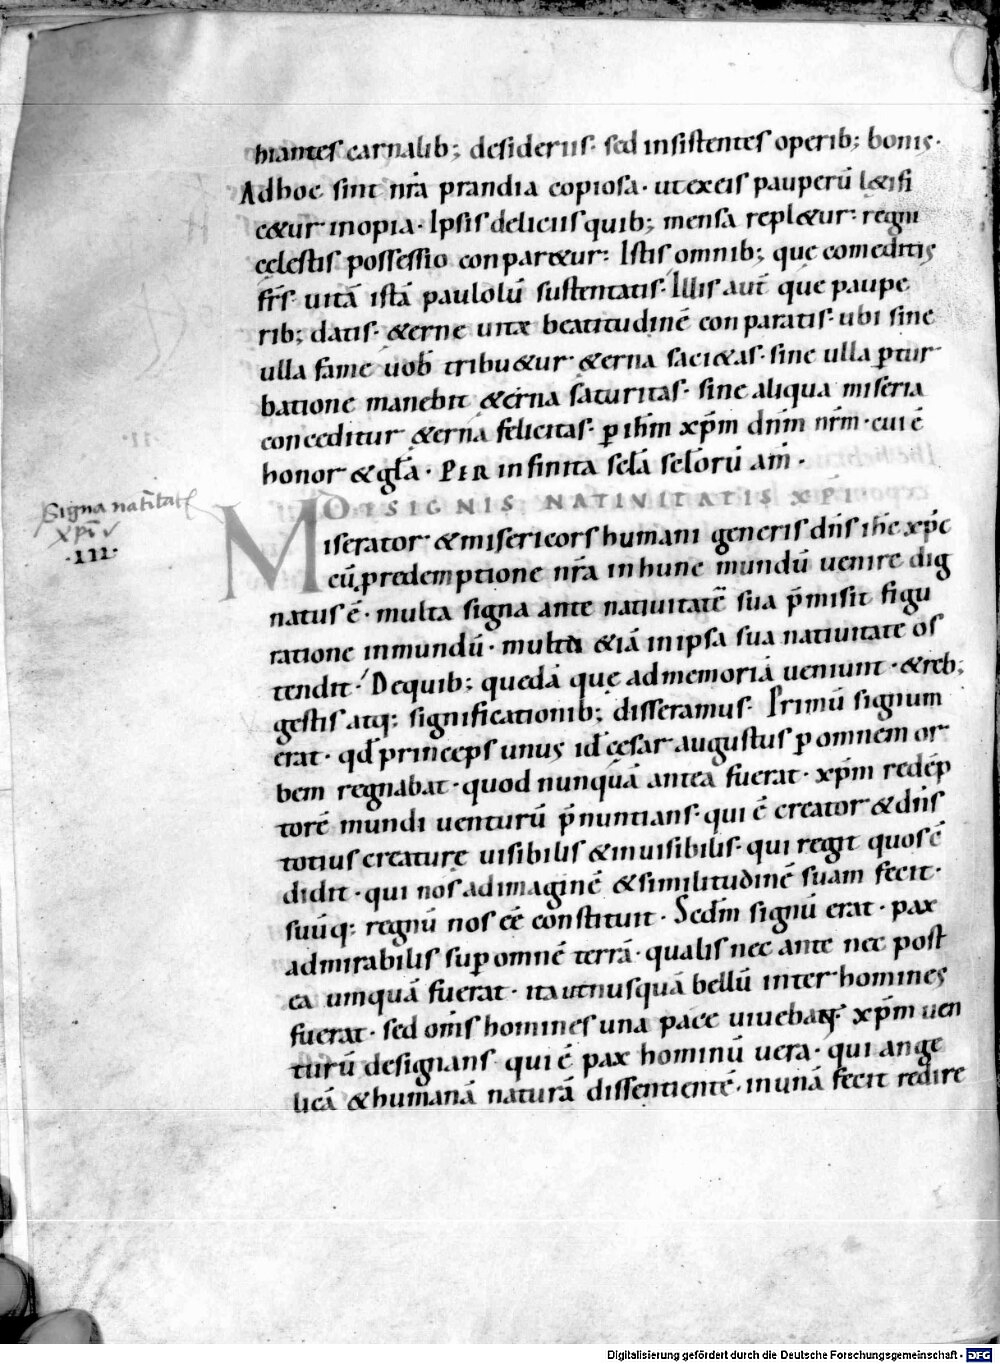 hiantes carnalib; desideriis· sed insistentes operib; bonis·
Adhoc sint nr̄a prandia copiosa· ut ex eis pauperū l&ifi
c&ur inopia· Ipsis deliciis quib; mensa repl&ur· regni
cęlestis possessio conpar&ur· Istis omnib; que comeditis
fr̄s· uitā istā paulolū sustentatis· Illis aut̄ que paupe
rib; datis· &erne uitæ beatitudinē conparatis· ubi sine
ulla fame uob̄ tribu&ur &erna saci&as· sine ulla ꝑtur
batione manebit &erna saturitas· sine aliqua miseria
conceditur &erna felicitas· ꝑ ih̄m xp̄m dn̄m nr̄m· cui ē
honor & gl̄a· PER infinita scl̄a scl̄orū am̄·
DE SIGNIS NATIVITATIS XP̄I·
Signa natiūitatꝭ
xp̄i
·III·
Miserator & misericors humani generis dn̄s ih̄c xp̄c
cū ꝑ redemptione nr̄a in hunc mundū uenire dig
natus ē· multa signa ante natiuitatē sua p̄misit figu
ratione in mundū· multa &iā in ipsa sua natiuitate os
tendit· De quib; quedā que ad memoriā ueniunt· & reb;
gestis atq; significationib; disseramus· Primū signum
erat· qd̄ princeps unus id̄ cęsar augustus ꝑ omnem or
bem regnabat· quod nunquā antea fuerat· xp̄m redēp
torē mundi uenturū p̄nuntians· qui ē creator & dn̄s
totius creaturę uisibilis & inuisibilis· qui regit quos ē
didit· qui nos ad imaginē & similitudinē suam fecit·
suūq; regnū nos eē constituit· Secdm̄ signū erat· pax
admirabilis suꝑ omnē terrā· qualis nec ante nec post
ea umquā fuerat· ita ut nusquā bellū inter homines
fuerat· sed om̄s homines una pace uiuebant· xp̄m uen
turū designans· qui ē pax hominū uera· qui ange
licā & humanā naturā dissentientē· in unā fecit redire
Digitalisierung gefördert durch die Deutsche Forschungsgemeinschaft - DFG